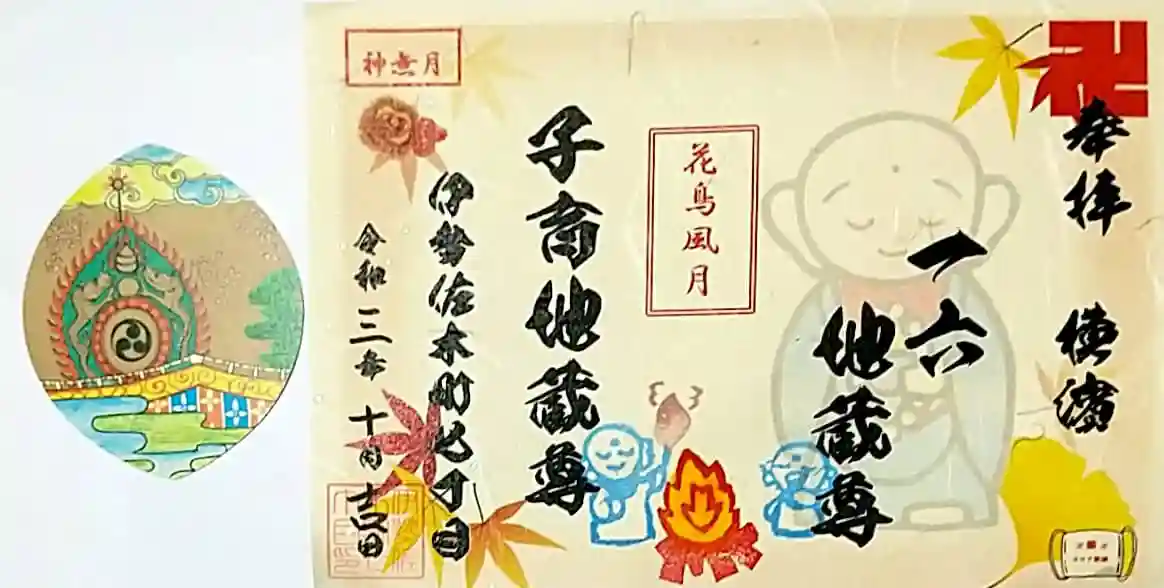 奉拝 横濱
一六
地蔵尊
花鳥風月
子育地蔵尊
伊勢佐木町七丁目
令和三年 十月 吉日
神無月